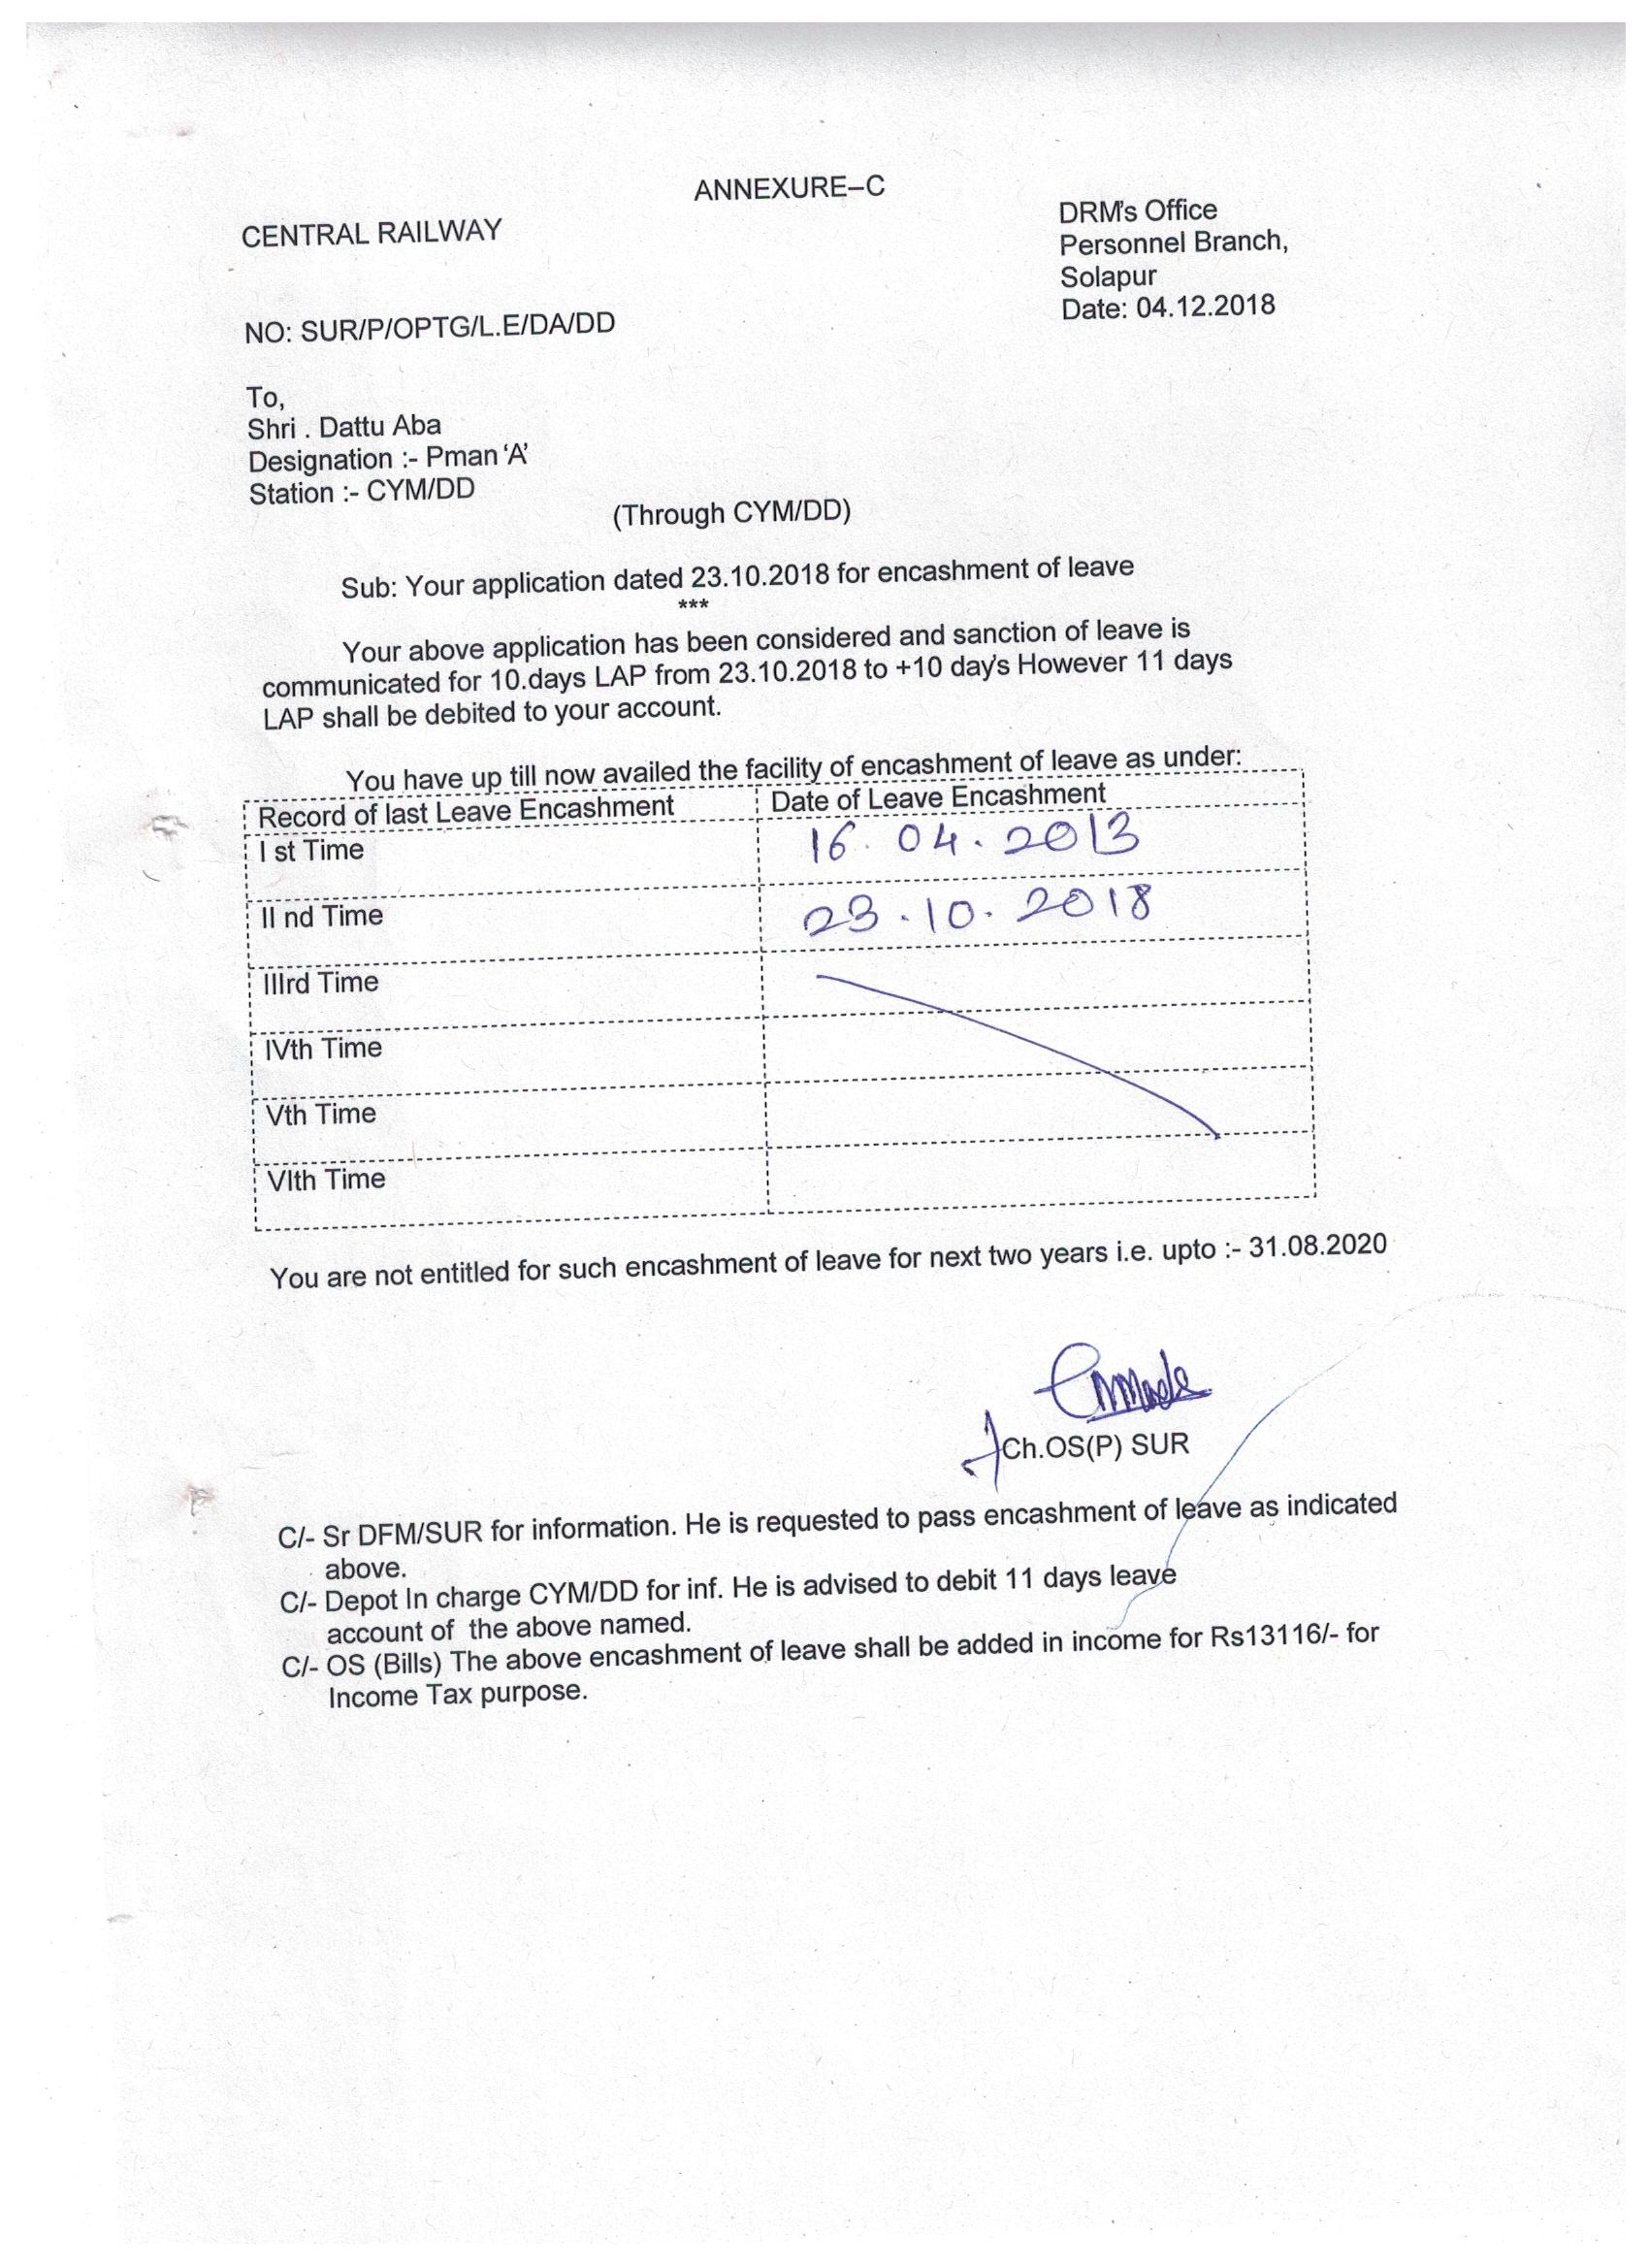 ANNEXURE–C
CENTRAL RAILWAY
DRM's Office
Personnel Branch,
Solapur
Date: 04.12.2018
NO: SUR/P/OPTG/L.E/DA/DD
To,
Shri . Dattu Aba
Designation :- Pman 'A'
Station :- CYM/DD
(Through CYM/DD)
Sub: Your application dated 23.10.2018 for encashment of leave
***
Your above application has been considered and sanction of leave is
communicated for 10.days LAP from 23.10.2018 to +10 day's However 11 days
LAP shall be debited to your account.
You have up till now availed the facility of encashment of leave as under:
Record of last Leave Encashment Date of Leave Encashment
I st Time 16.04.2013
II nd Time 23.10.2018
IIIrd Time
IVth Time
Vth Time
VIth Time
You are not entitled for such encashment of leave for next two years i.e. upto :- 31.08.2020
Ch.OS(P) SUR
C/- Sr DFM/SUR for information. He is requested to pass encashment of leave as indicated
above.
C/- Depot In charge CYM/DD for inf. He is advised to debit 11 days leave
account of the above named.
C/- OS (Bills) The above encashment of leave shall be added in income for Rs13116/- for
Income Tax purpose.